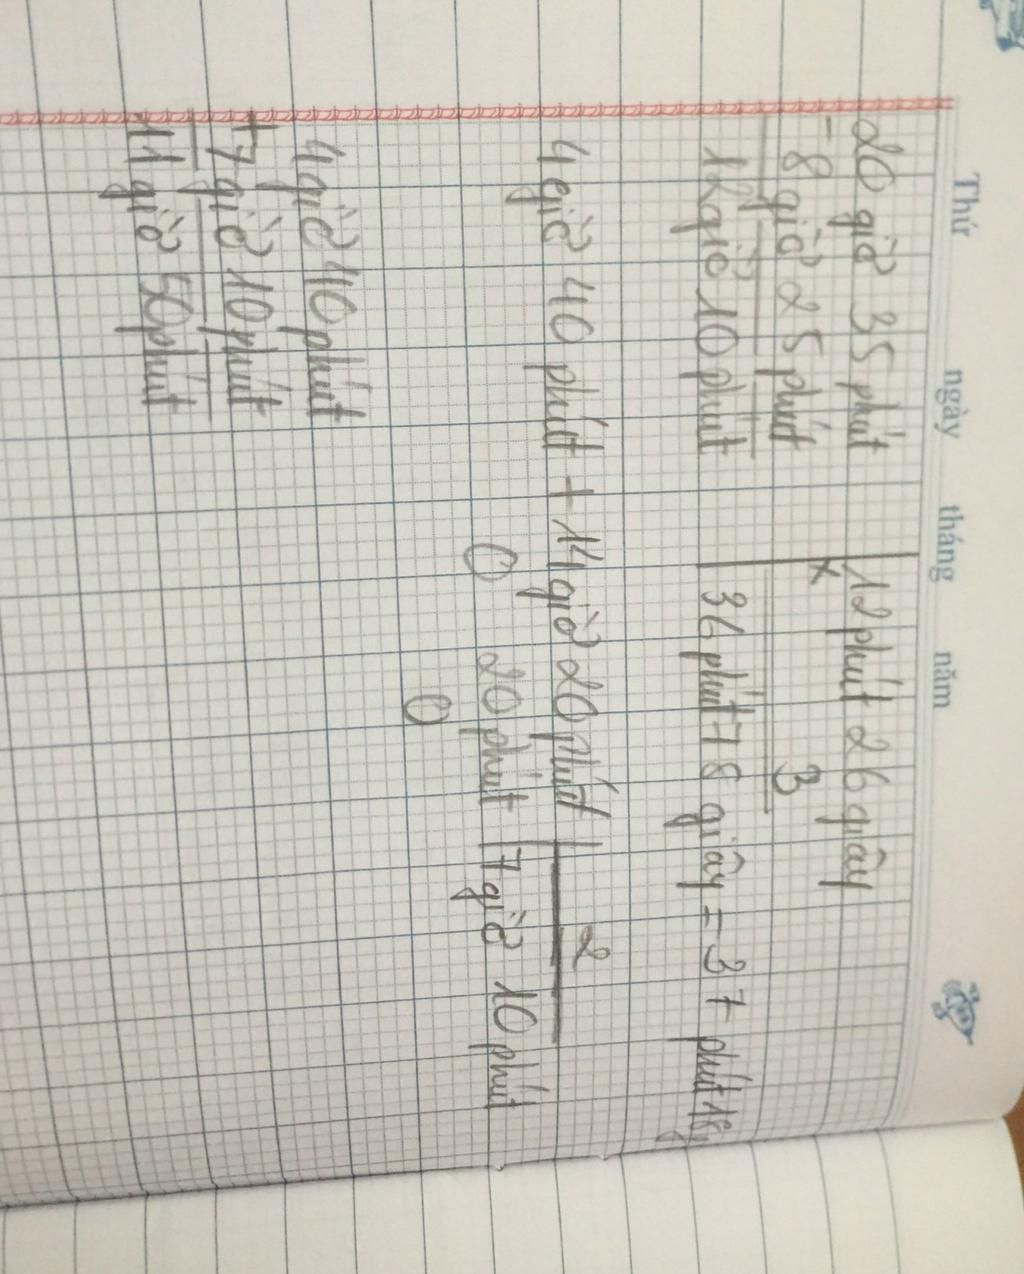 Thứ ngày tháng năm
20 giờ 35 phút
- 8 giờ 25 phút
12 giờ 10 phút
12 phút 26 giây
x 3
36 phút 78 giây = 37 phút 18g
4 giờ 40 phút + 14 giờ 20 phút 2
0 20 phút 7 giờ 10 phút
0
4 giờ 40 phút
+ 7 giờ 10 phút
11 giờ 50 phút